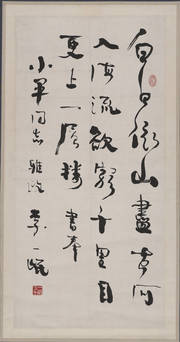 白日依山盡黃河
入海流欲窮千里目
更上一層樓 書奉
小 同志 雅 一